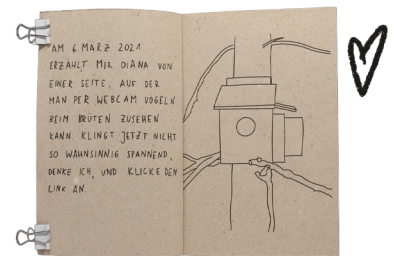 AM 6 MÄRZ 2021
ERZÄHLT MIR DIANA VON
EINER SEITE, AUF DER
MAN PER WEBCAM VÖGELN
BEIM BRÜTEN ZUSEHEN
KANN. KLINGT JETZT NICHT
SO WAHNSINNIG SPANNEND,
DENKE ICH, UND KLICKE DEN
LINK AN.